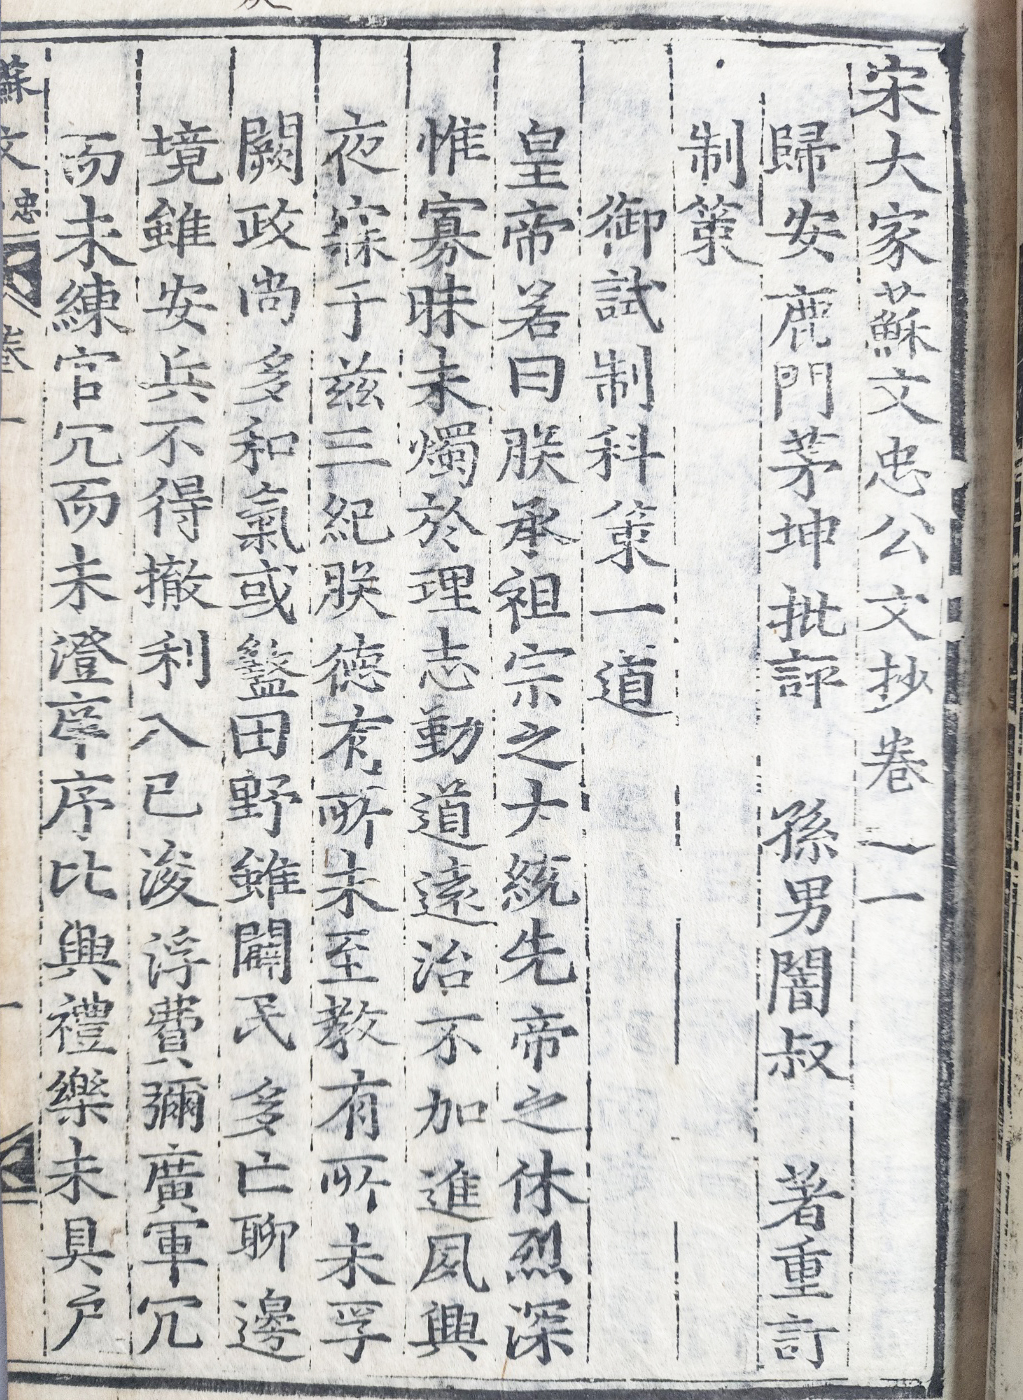 宋大家蘇文忠公文抄卷之一
歸安鹿門茅坤批評　孫男闇叔　著重訂
制策
御試制科策一道
皇帝若曰朕承祖宗之大統先帝之休烈深
惟寡昧未燭於理志動道遠治不加進夙興
夜寐于兹三紀朕德有所未至教有所未孚
闕政尚多和氣或盭田野雖闢民多亡聊邊
境雖安兵不得撤利入已浚浮費彌廣軍冗
而未練官冗而未澄庠序比興禮樂未具户
蘇文忠　卷一　一